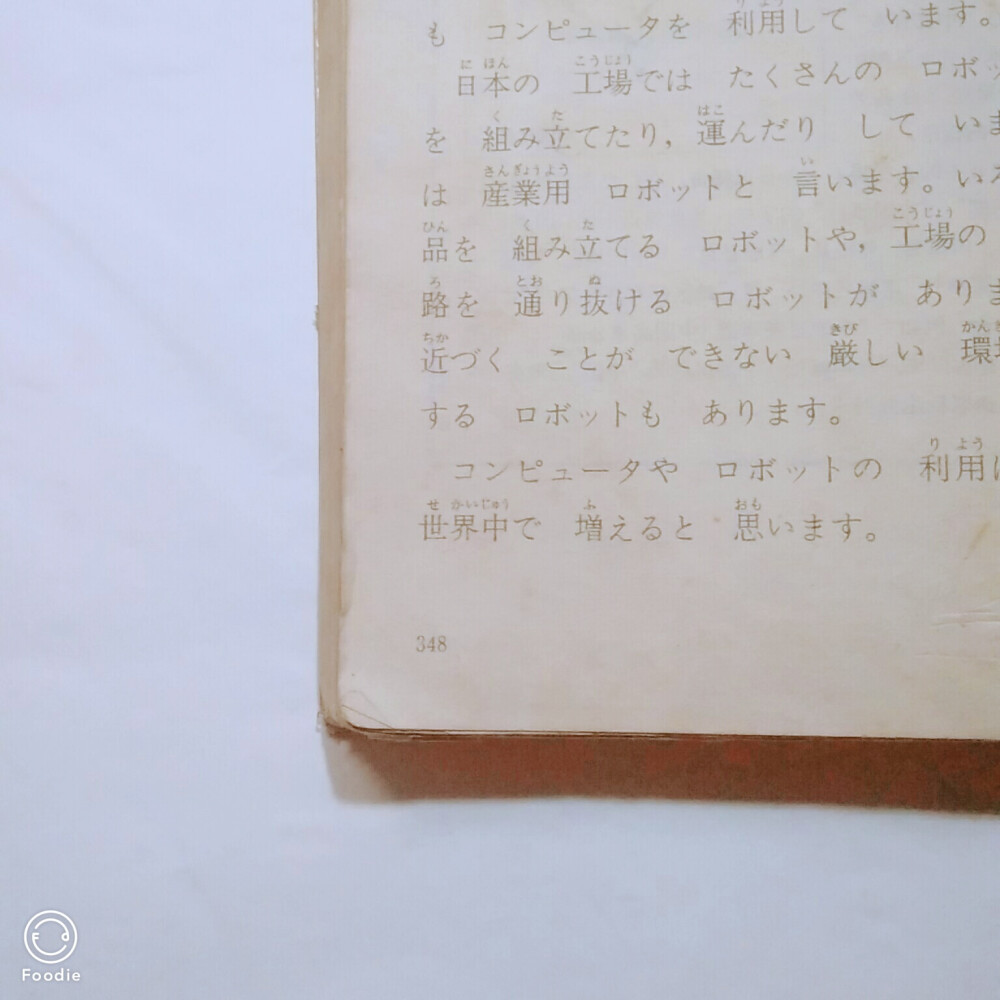 も コンピュータを 利用して います。
日本の 工場では たくさんの ロボッ
を 組み立てたり, 運んだり して いま
は 産業用 ロボットと 言います。いろ
品を 組み立てる ロボットや, 工場の
路を 通り抜ける ロボットが ありま
近づく ことが できない 厳しい 環境
する ロボットも あります。
コンピュータや ロボットの 利用は
世界中で 増えると 思います。
348
Foodie